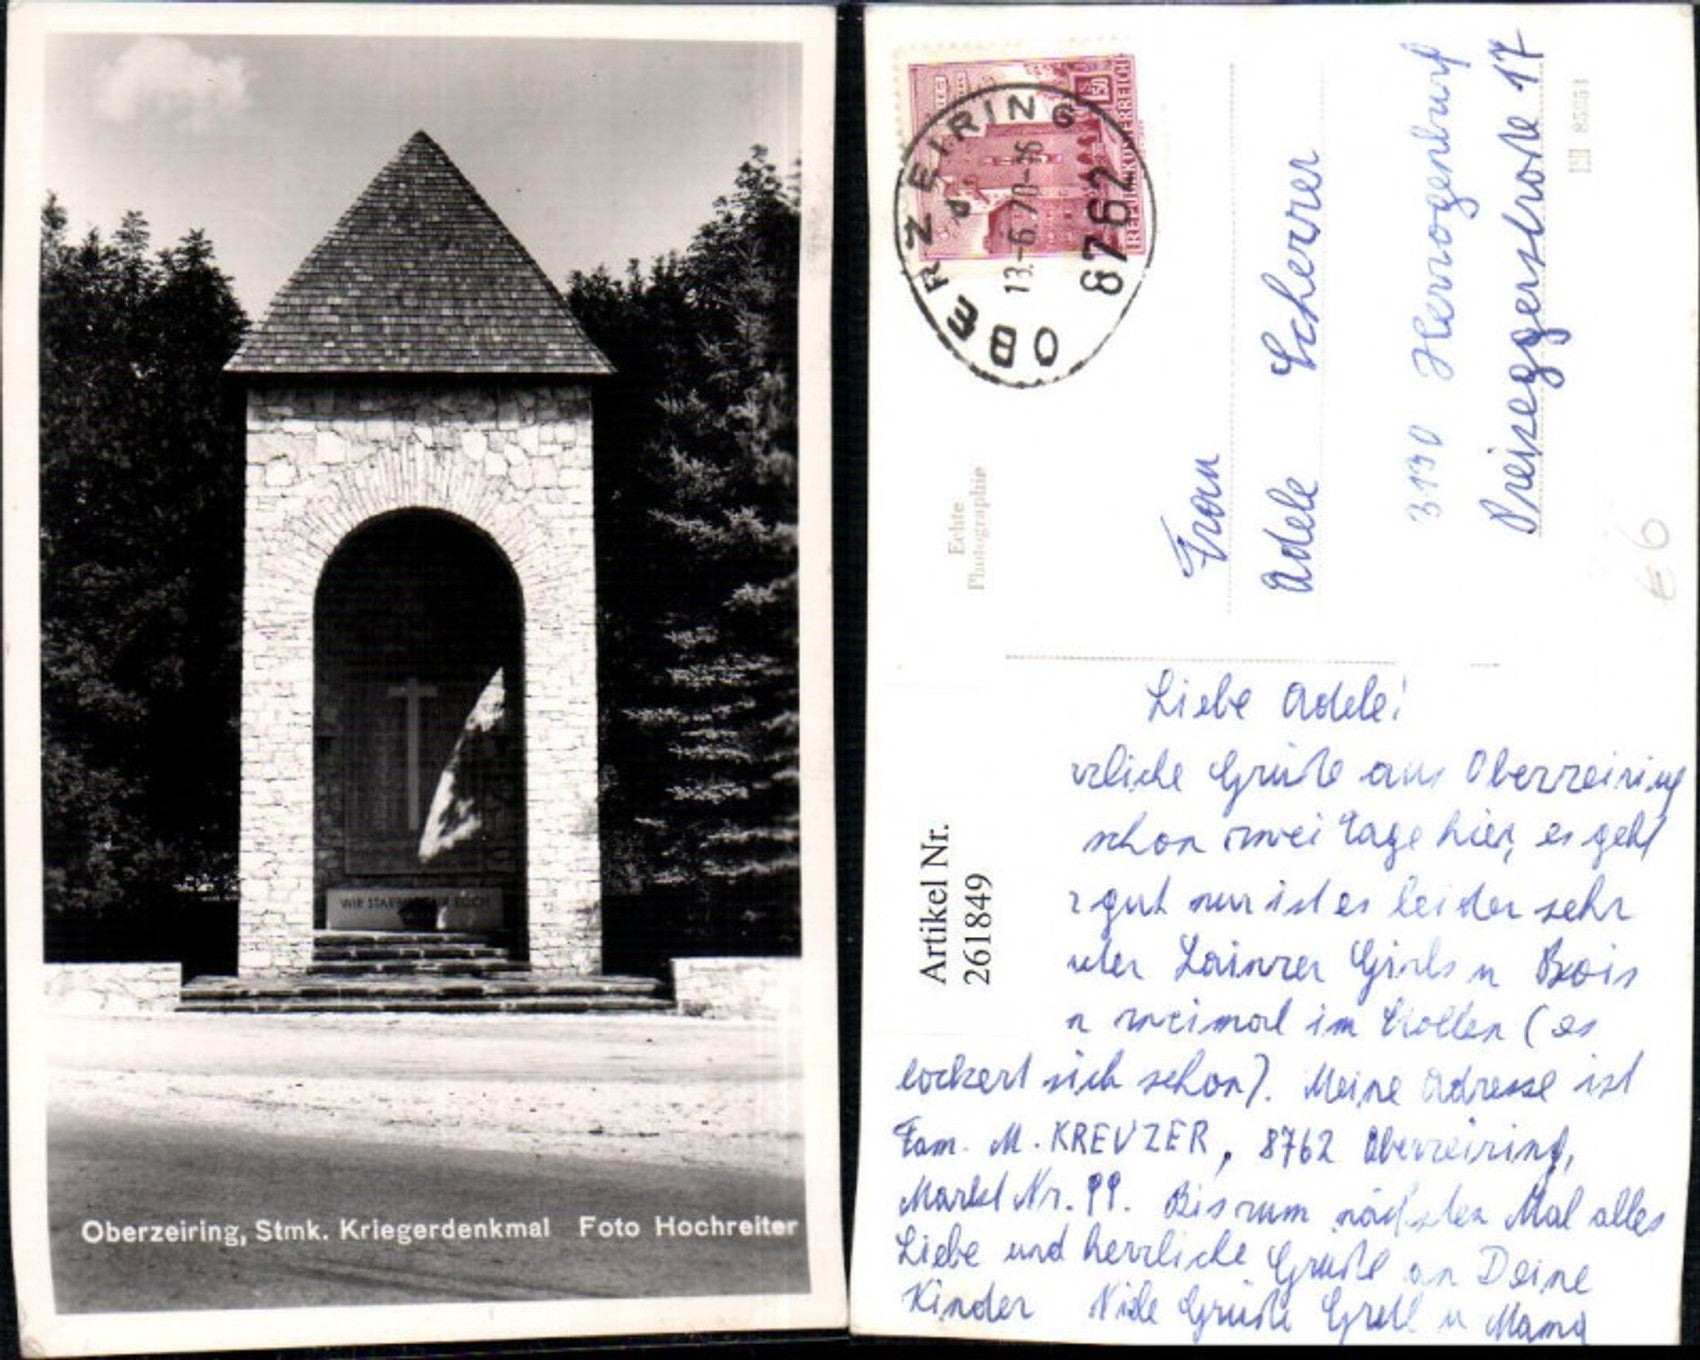 WIR STARBEN FÜR EUCH
Oberzeiring, Stmk. Kriegerdenkmal Foto Hochreiter
OBERZEIRING
13.-6.70-16
8762
1.50
REPUBLIK ÖSTERREICH
Echte
Photographie
Frau
Adele Scherrer
3130 Herzogenburg
Preiseggerstraße 17
€6
Artikel Nr.
261849
Liebe Adele!
rzliche Grüße aus Oberzeiring
schon zwei Tage hier, es geht
r gut nur ist es leider sehr
n zweimal im Stollen (es
lockert sich schon). Meine Adresse ist
Fam. M. KREUZER, 8762 Oberzeiring,
Markt Nr. 99. Bis zum nächsten Mal alles
Liebe und herzliche Grüße an Deine
Kinder Viele Grüße Gretl u Mama